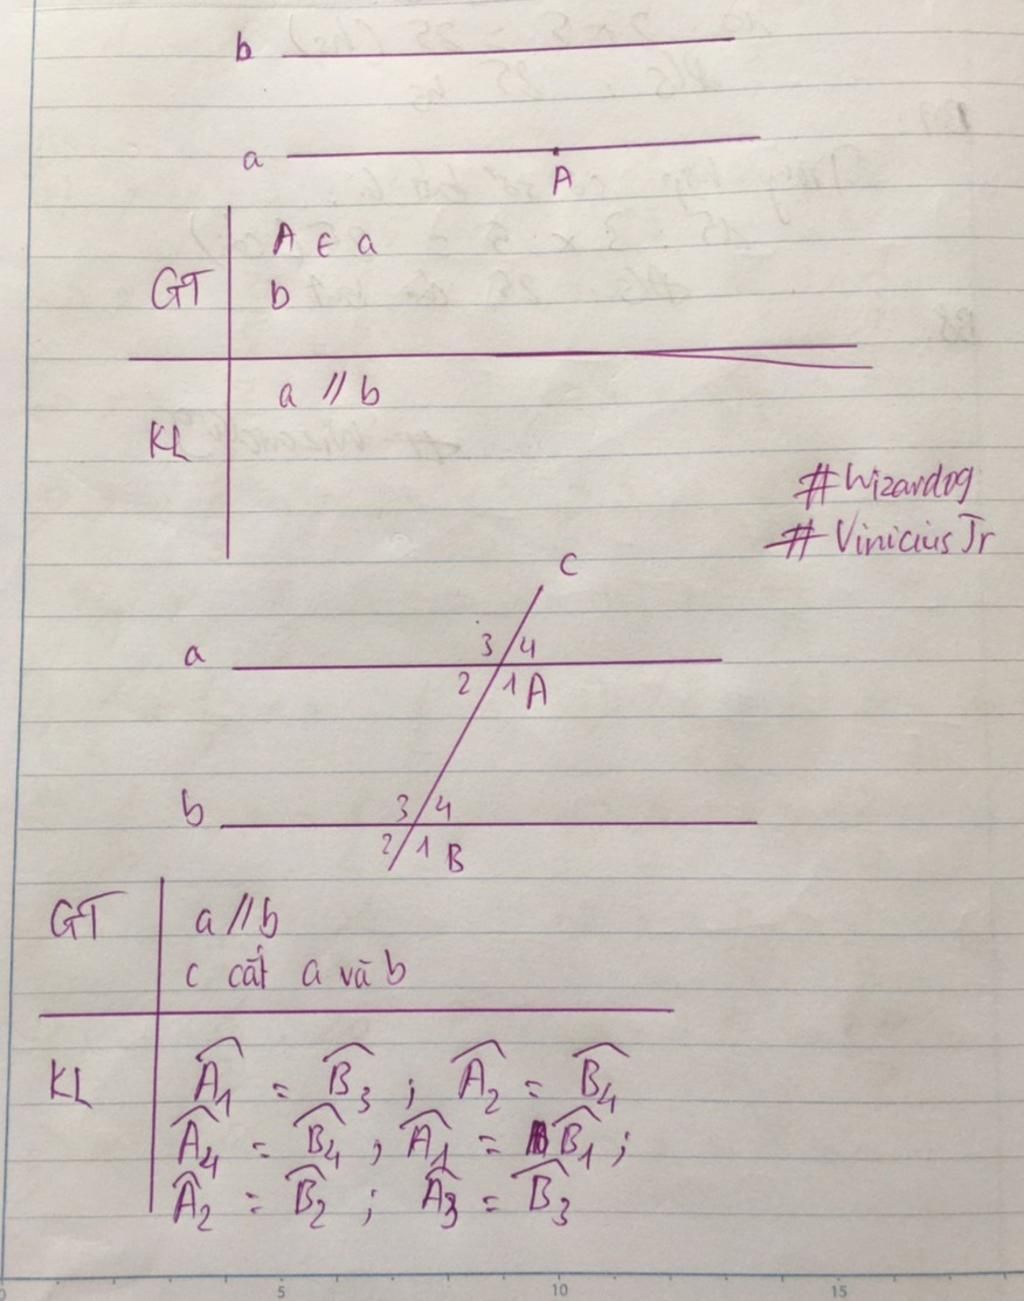 b
a
A
A ∈ a
GT
b
a // b
KL
#Wizardog
#Vinicius Jr
c
3 4
a
2 1 A
3 4
b
2 1 B
GT
a // b
c cắt a và b
KL
Â₁ = B̂₃ ; Â₂ = B̂₄
Â₄ = B̂₄ , Â₁ = B̂₁ ;
Â₂ = B̂₂ ; Â₃ = B̂₃
5 10 15